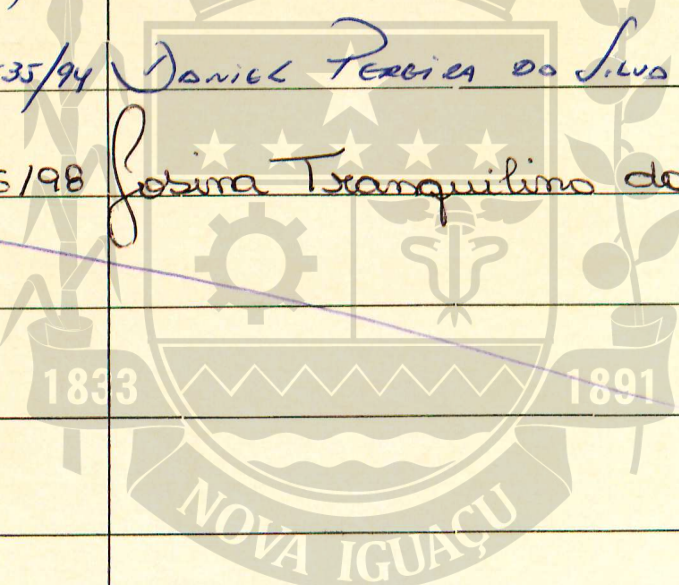 35/94 Daniel Pereira da Silva
/98 Josina Tranquilino da
1833 1891
NOVA IGUAÇU